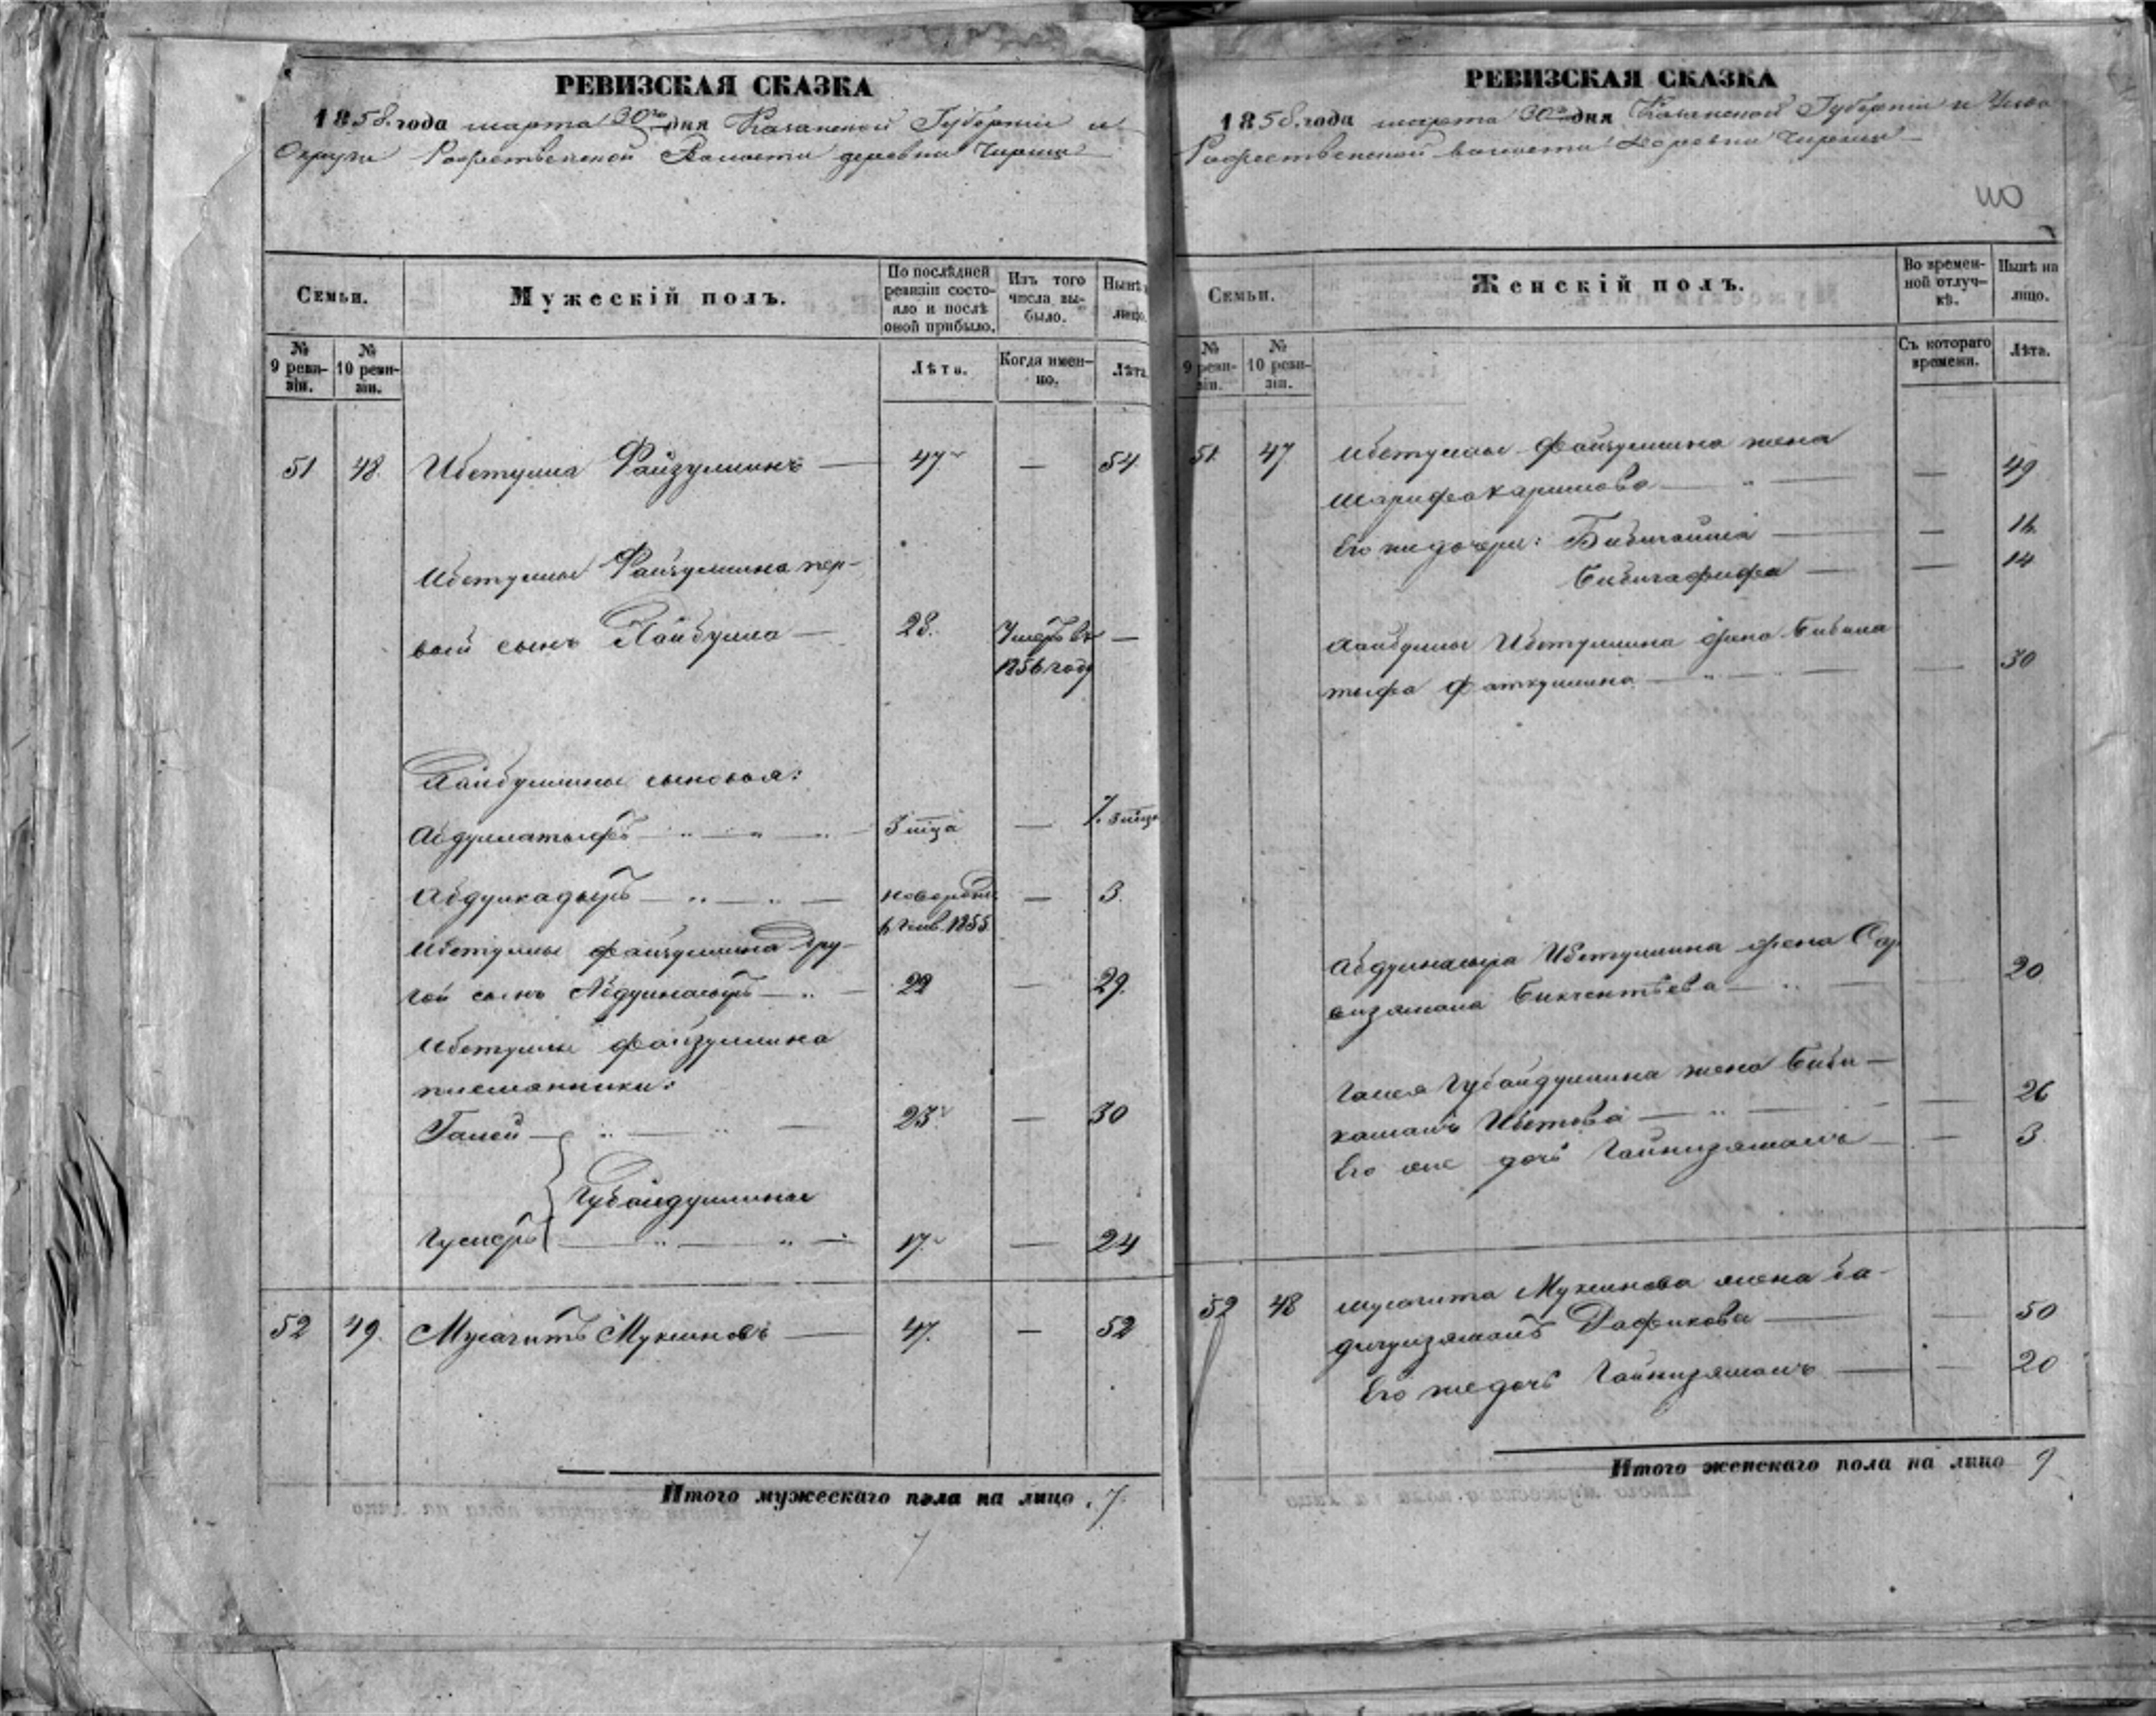 РЕВИЗСКАЯ СКАЗКА
1858 года марта 30го дня Казанской Губернии и
Округи Рождественской Волости деревни Чирши
Семьи.
Мужескій полъ.
По послѣдней ревизіи состояло и послѣ оной прибыло.
Изъ того числа выбыло.
Нынѣ лицо.
№ 9 ревизіи.
№ 10 ревизіи.
Лѣта.
Когда именно.
Лѣта.
51 48. Ибетулла Файзуллинъ — 47 — 54.
Ибетуллы Файзуллина пер-
вой сынъ Хайбулла — 28. Умеръ въ —
1856 году
Хайбуллины сыновья:
Абдуллатыфъ 3 мца — 7. 3 мца
Абдулкадыръ новорожд. — 3.
1855
Ибетуллы Файзуллина дру-
гой сынъ Абдулнасыръ 22 — 29.
Ибетуллы Файзуллина
племянники:
Галей 23 — 30
Губайдуллины
Гумеръ 17. — 24
52 49. Мусагитъ Мукминовъ — 47. — 52
Итого мужескаго пола на лицо . 7.
РЕВИЗСКАЯ СКАЗКА
1858 года марта 30го дня Казанской Губерніи и
Рождественской волости деревни Чирши
110
Семьи.
Женскій полъ.
Во временной отлучкѣ.
Нынѣ на лицо.
№ 9 ревизіи.
№ 10 ревизіи.
Съ котораго времени.
Лѣта.
51 47 Ибетуллы Файзуллина жена
Шарифа Каримова — 49
Его же дочери: —
Бибигафифа — 14
Хайбуллы Ибетуллина жена Бибила
тыфа Фаткуллина — 30
Абдулнасыра Ибетуллина жена
Бикчентѣева 20
Галея Губайдуллина жена Биби-
камалъ — 26
Его же дочь Гайнизямалъ — 3.
52 48 Мусагита Мукминова жена Ба-
— 50
Его же дочь Гайнизямалъ — 20
Итого женскаго пола на лицо 9